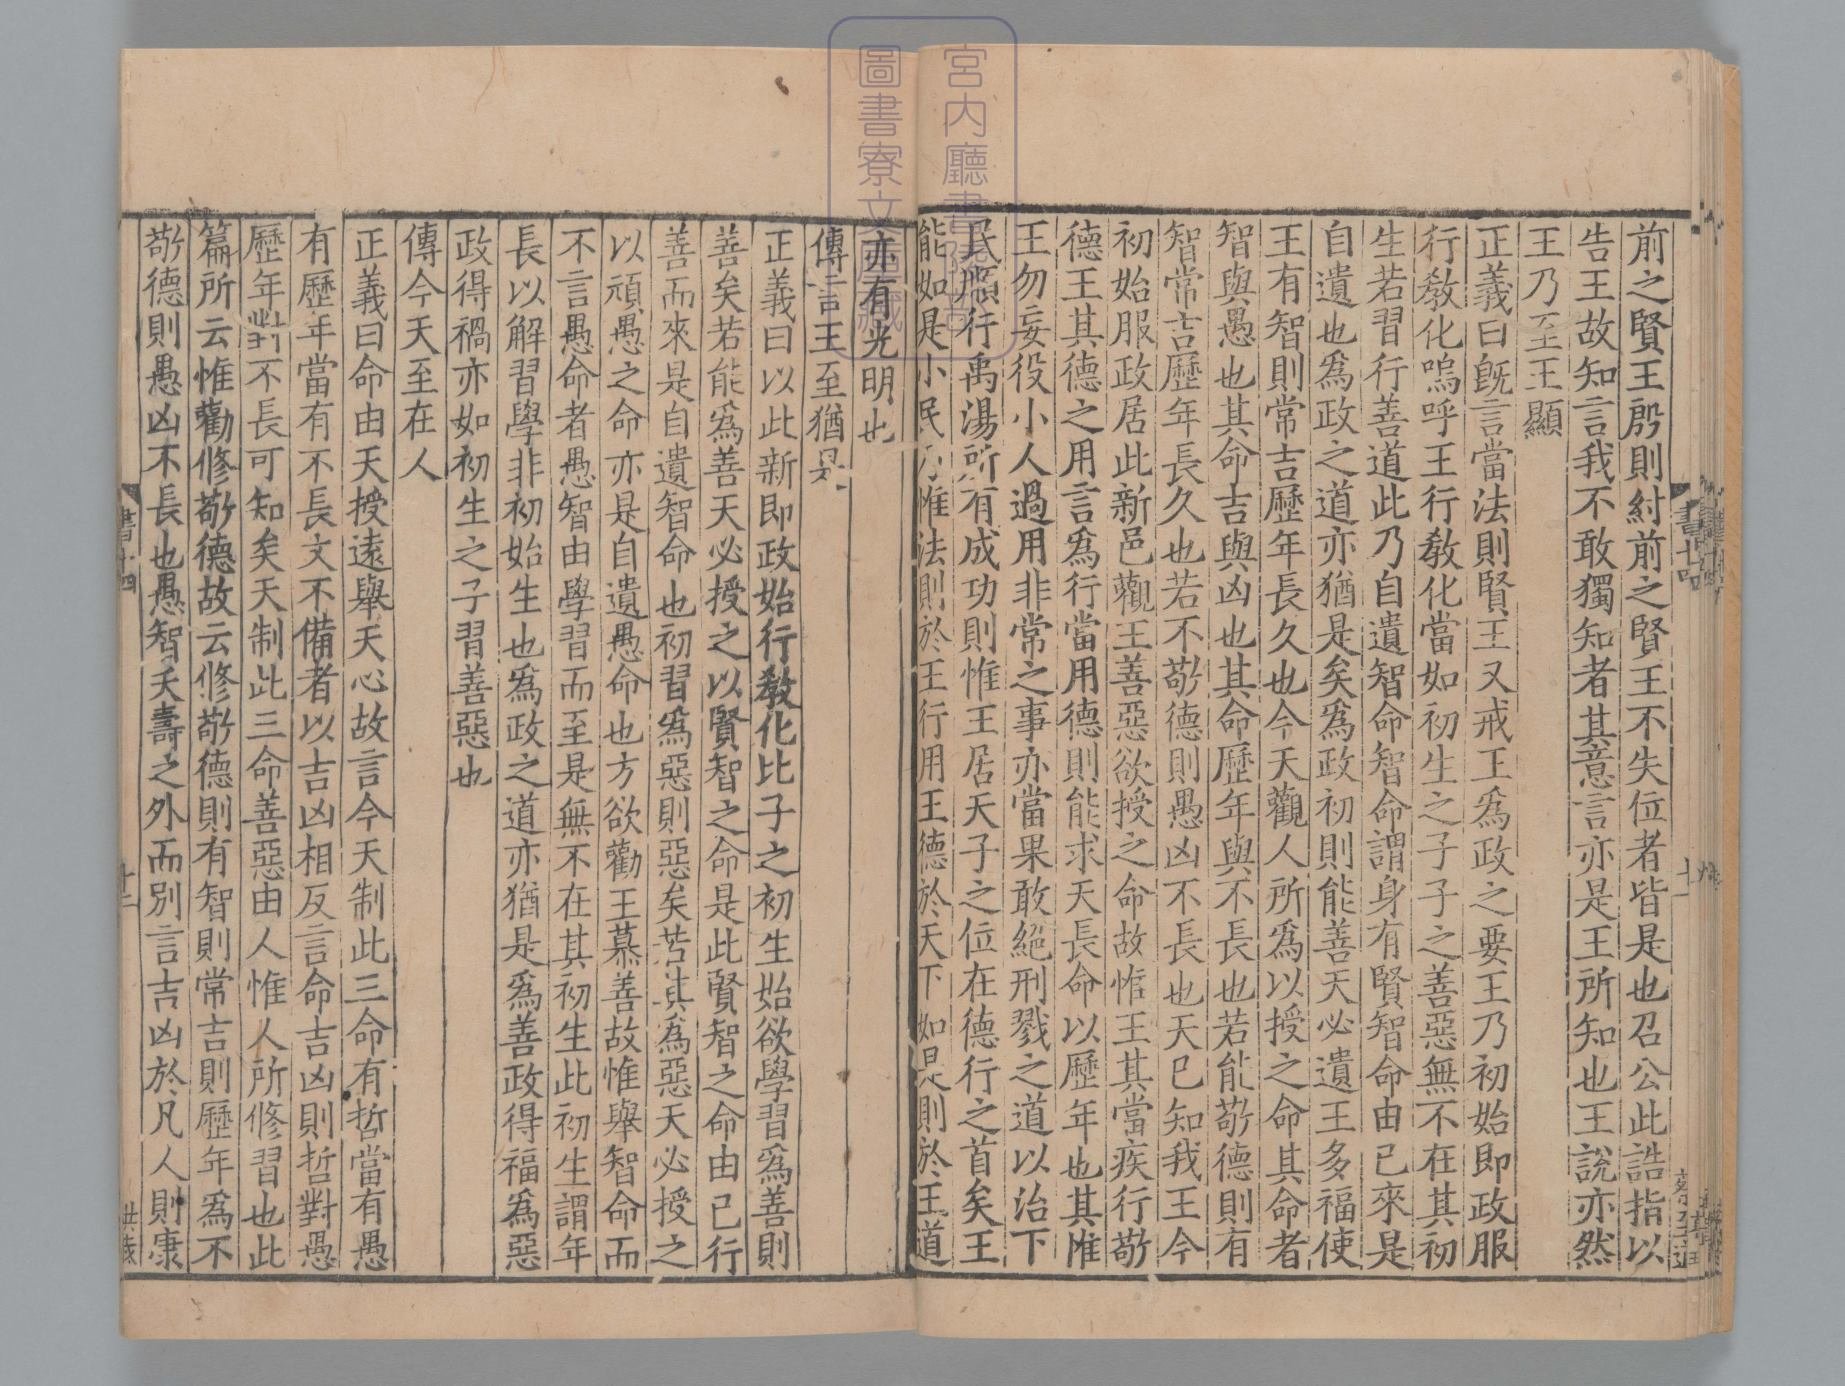 前之賢王殷則紂前之賢王不失位者皆是也召公此誥指以
告王故知言我不敢獨知者其意言亦是王所知也王說亦然
王乃至王顯
正義曰旣言當法則賢王又戒王爲政之要王乃初始即政服
行敎化嗚呼王行敎化當如初生之子子之善惡無不在其初
生若習行善道此乃自遺智命智命謂身有賢智命由已來是
自遺也爲政之道亦猶是矣爲政初則能善天必遺王多福使
王有智則常吉歷年長久也今天觀人所爲以授之命其命者
智與愚也其命吉與凶也其命歷年與不長也若能敬德則有
智常吉歷年長久也若不敬德則愚凶不長也天已知我王今
初始服政居此新邑觀王善惡欲授之命故惟王其當疾行敬
德王其德之用言爲行當用德則能求天長命以歷年也其惟
王勿妄役小人過用非常之事亦當果敢絕刑戮之道以治下
民順行禹湯所有成功則惟王居天子之位在德行之首矣王
能如是小民乃惟法則於王行用王德於天下如是則於王道
亦有光明也
傳言王至猶是
正義曰以此新即政始行敎化比子之初生始欲學習爲善則
善矣若能爲善天必授之以賢智之命是此賢智之命由已行
善而來是自遺智命也初習爲惡則惡矣若其爲惡天必授之
以頑愚之命亦是自遺愚命也方欲勸王慕善故惟舉智命而
不言愚命者愚智由學習而至是無不在其初生此初生謂年
長以解習學非初始生也爲政之道亦猶是爲善政得福爲惡
政得禍亦如初生之子習善惡也
傳今天至在人
正義曰命由天授遠舉天心故言今天制此三命有哲當有愚
有歷年當有不長文不備者以吉凶相反言命吉凶則哲對愚
歷年對不長可知矣天制此三命善惡由人惟人所修習也此
篇所云惟勸修敬德故云修敬德則有智則常吉則歷年爲不
敬德則愚凶不長也愚智夭壽之外而別言吉凶於凡人則康
書十四
十二
宮內廳書陵部
圖書寮文庫藏